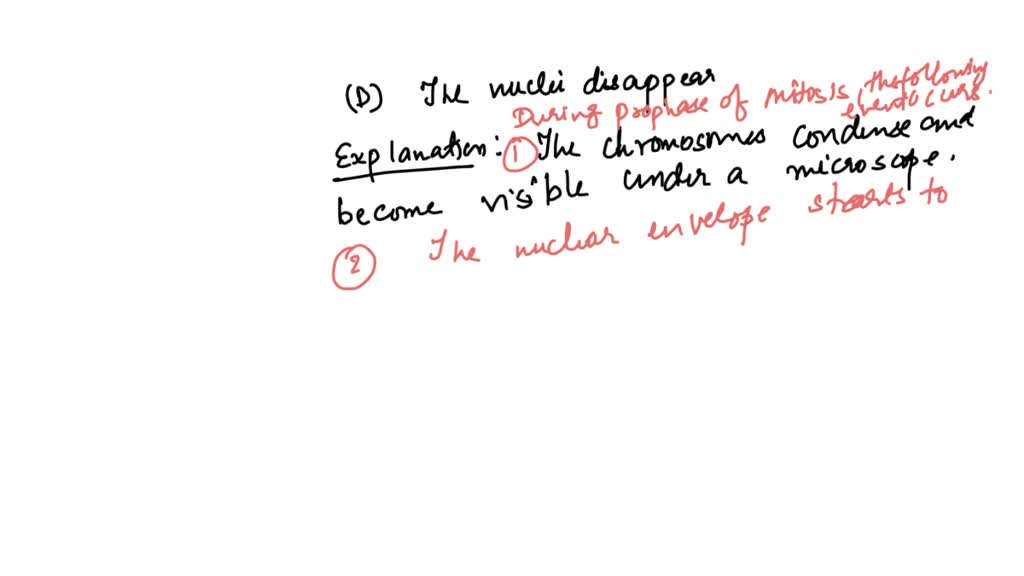 (D) The nuclei disappear
During prophase of mitosis, the following
event occurs.
Explanation: ① The chromosomes condense and
become visible under a microscope.
② The nuclear envelope starts to